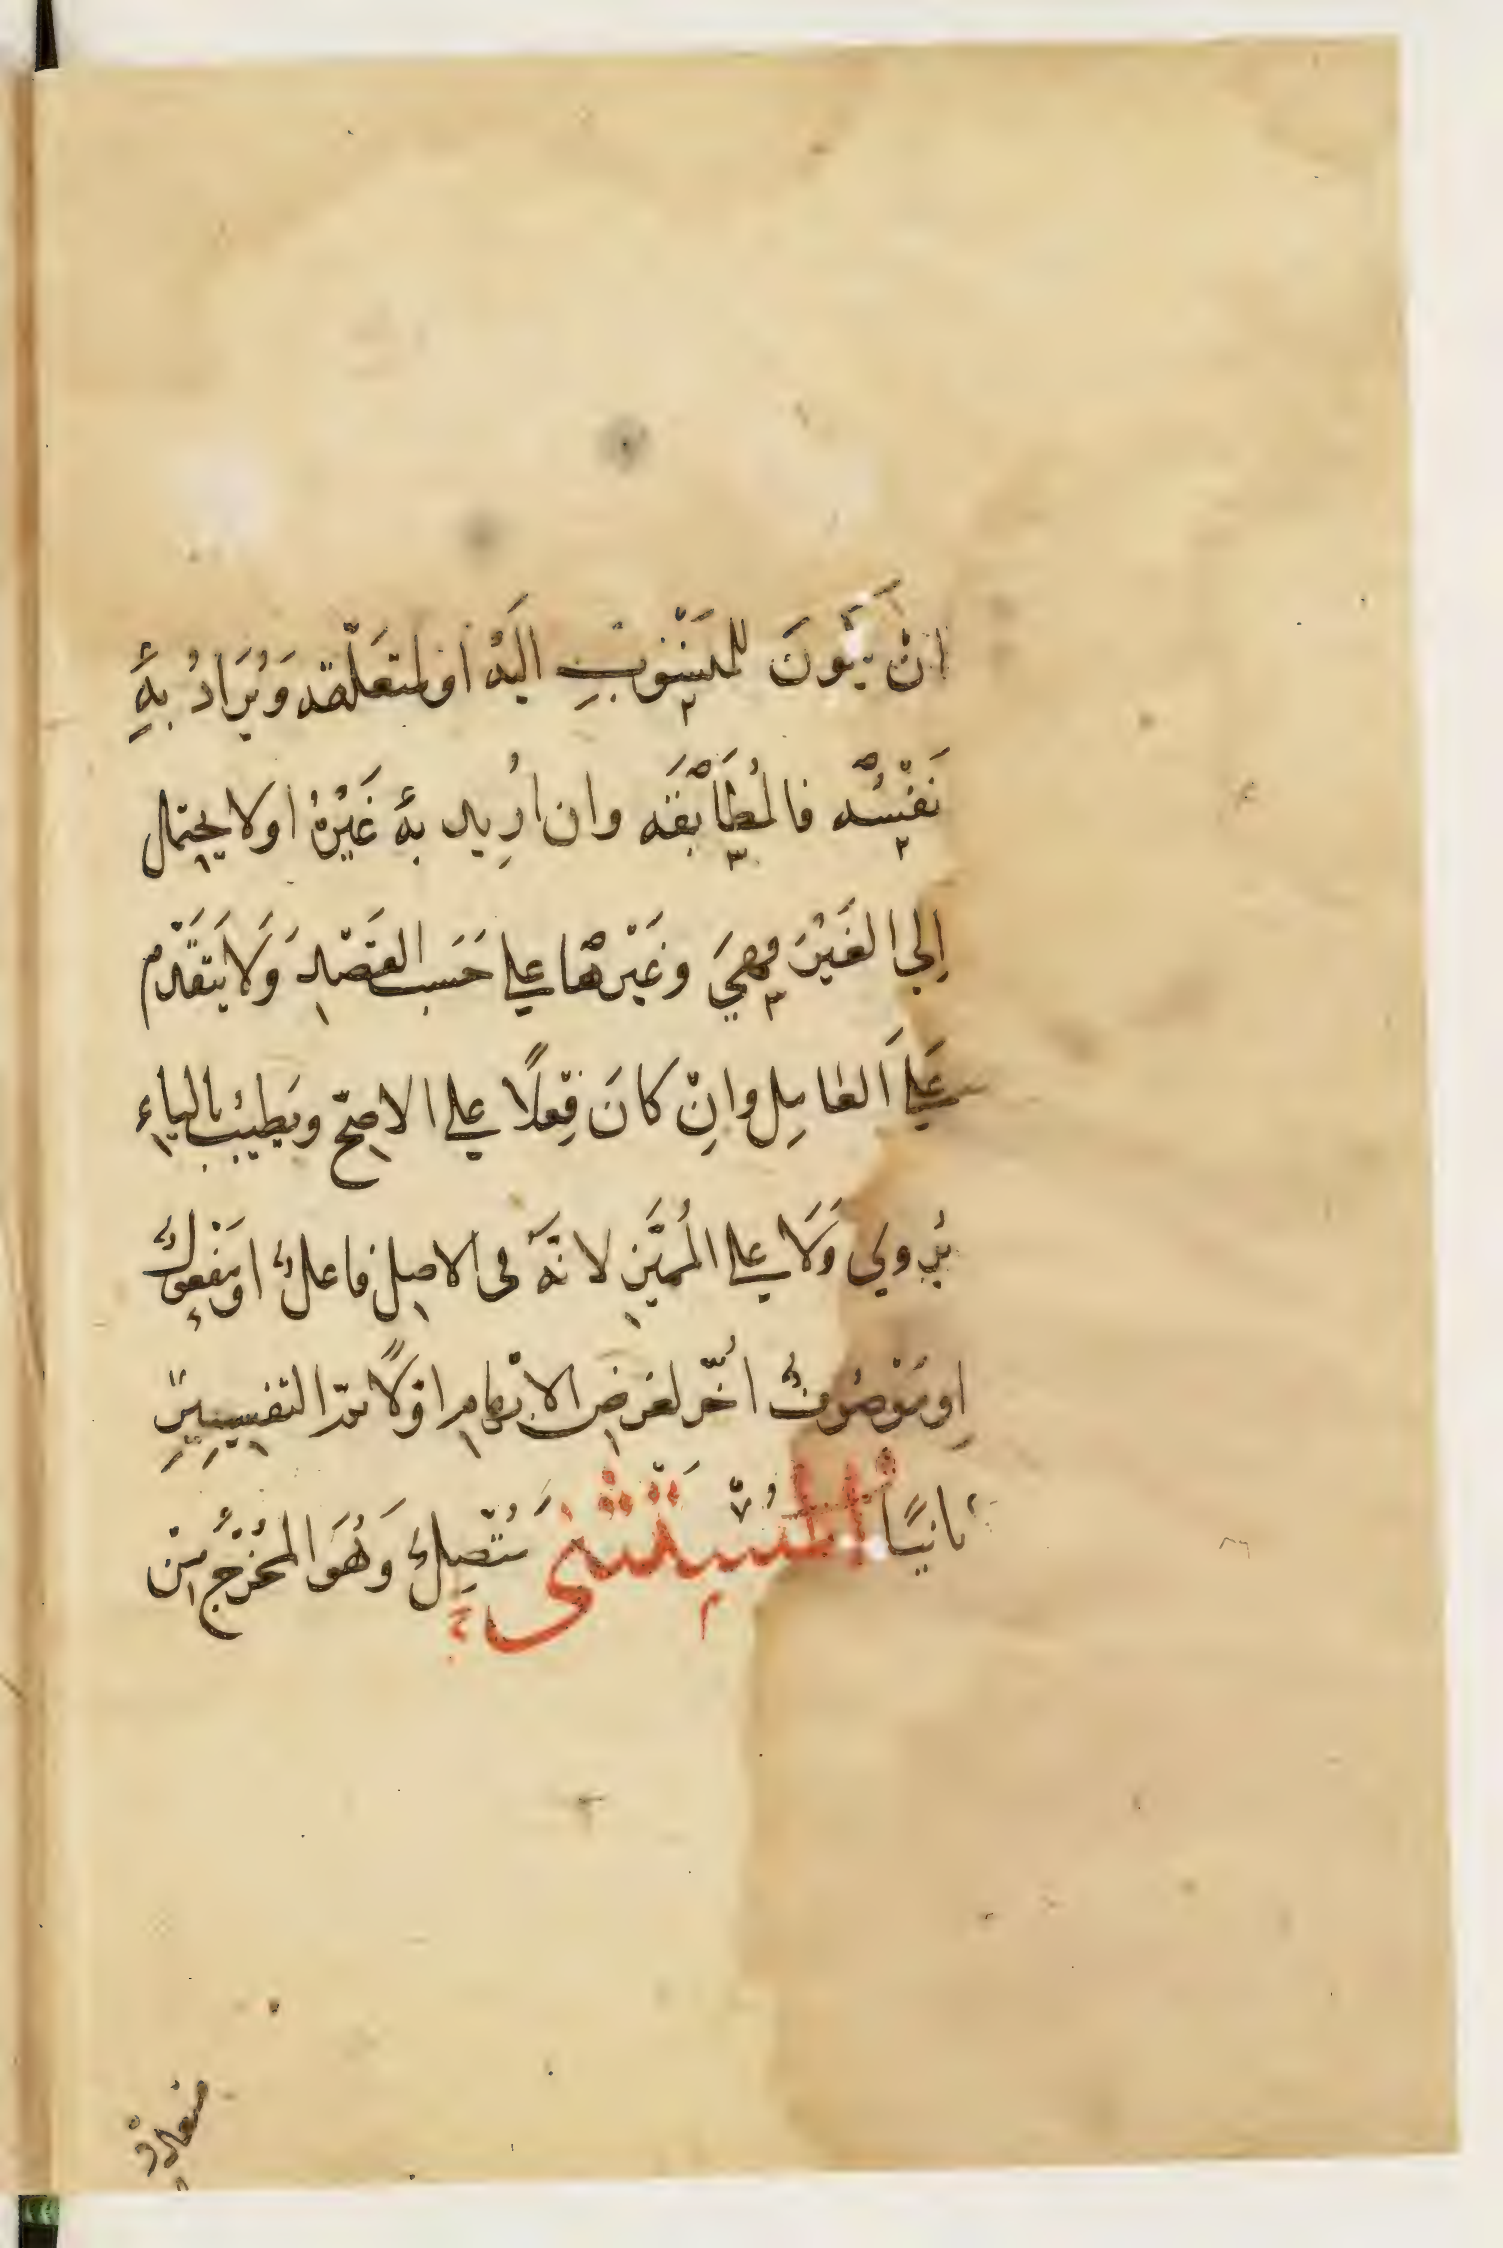 انْ يَكُونَ للمَنْسُوبِ اليَهْ اوْلمتعَلّقه وَيُرَادُ بِهٖ
نَفْسُه فالمُطَابَقَه وان اُرِيد بهٖ غَيْرُهُ اولا يحتمل
اِلي الغَيْرَ فهيَ وغَيْرهَا علي حَسَب القصْد وَلَا يَتقَدّم
عَليَ العَامِل وانِّ كانَ فِعْلًا علي الاصَحّ ويَطيْب بالياء
يُروي وَلَا علي المُميَّز لانّهَ في الاصل فاعلٌ اومَفْعوُلٌ
اومَوْصُوفٌ اُخّر لغرض الابهام اوّلًا ثمّ التفسِيرِ
ثانيًا المُسْتَثْني مُتّصِلٌ وَهُوَ المُخْرَجُ مِنْ